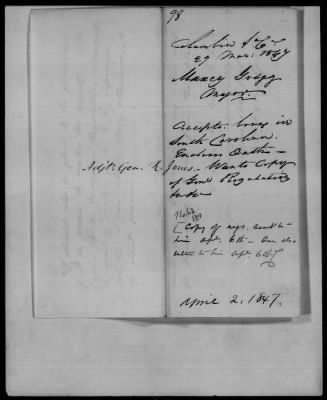 98
Columbia S. C.
29 Mar: 1847
Maxcy Gregg
Major
Accepts: born in
South Carolina.
Encloses Oath—
Adjt: Gen. R. Jones. Wants Copy
of Genl Regulations
[Copy of regs. sent to
him Apr. 6th
him Apr. 6th
April 2, 1847.